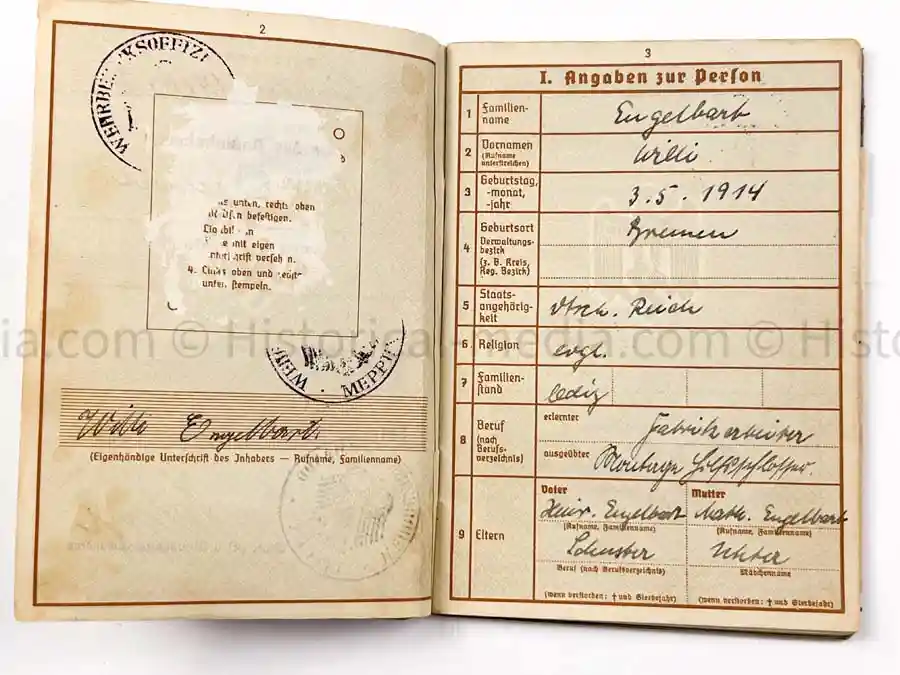 2
WEHRBEZIRKSOFFIZI
us unten, rechts oben
befestigen.
mit eigen
4. Links oben und
unten stempeln.
MEPPEN
Willi Engelbart.
(Eigenhändige Unterschrift des Inhabers — Rufname, Familienname)
3
I. Angaben zur Person
1 Familien-
name
Engelbart
2 Vornamen
(Rufname
unterstreichen)
Willi
3 Geburtstag,
-monat,
-jahr
3.5.1914
4 Geburtsort
Verwaltungs-
bezirk
(z. B. Kreis,
Reg. Bezirk)
Bremen
5 Staats-
angehörig-
keit
dtsch. Reich
6 Religion
evgl.
7 Familien-
stand
ledig
8 Beruf
(nach
Berufs-
verzeichnis)
erlernter
Fabrikarbeiter
ausgeübter
Montage Hilfsschlosser.
9 Eltern
Vater
Heinr. Engelbart
(Rufname, Familienname)
Schuster
Beruf (nach Berufsverzeichnis)
(wenn verstorben: † und Sterbejahr)
Mutter
Math. Engelbart
(Rufname, Familienname)
Mädchenname
(wenn verstorben: † und Sterbejahr)
ia.com © Historical-media.com © Histo